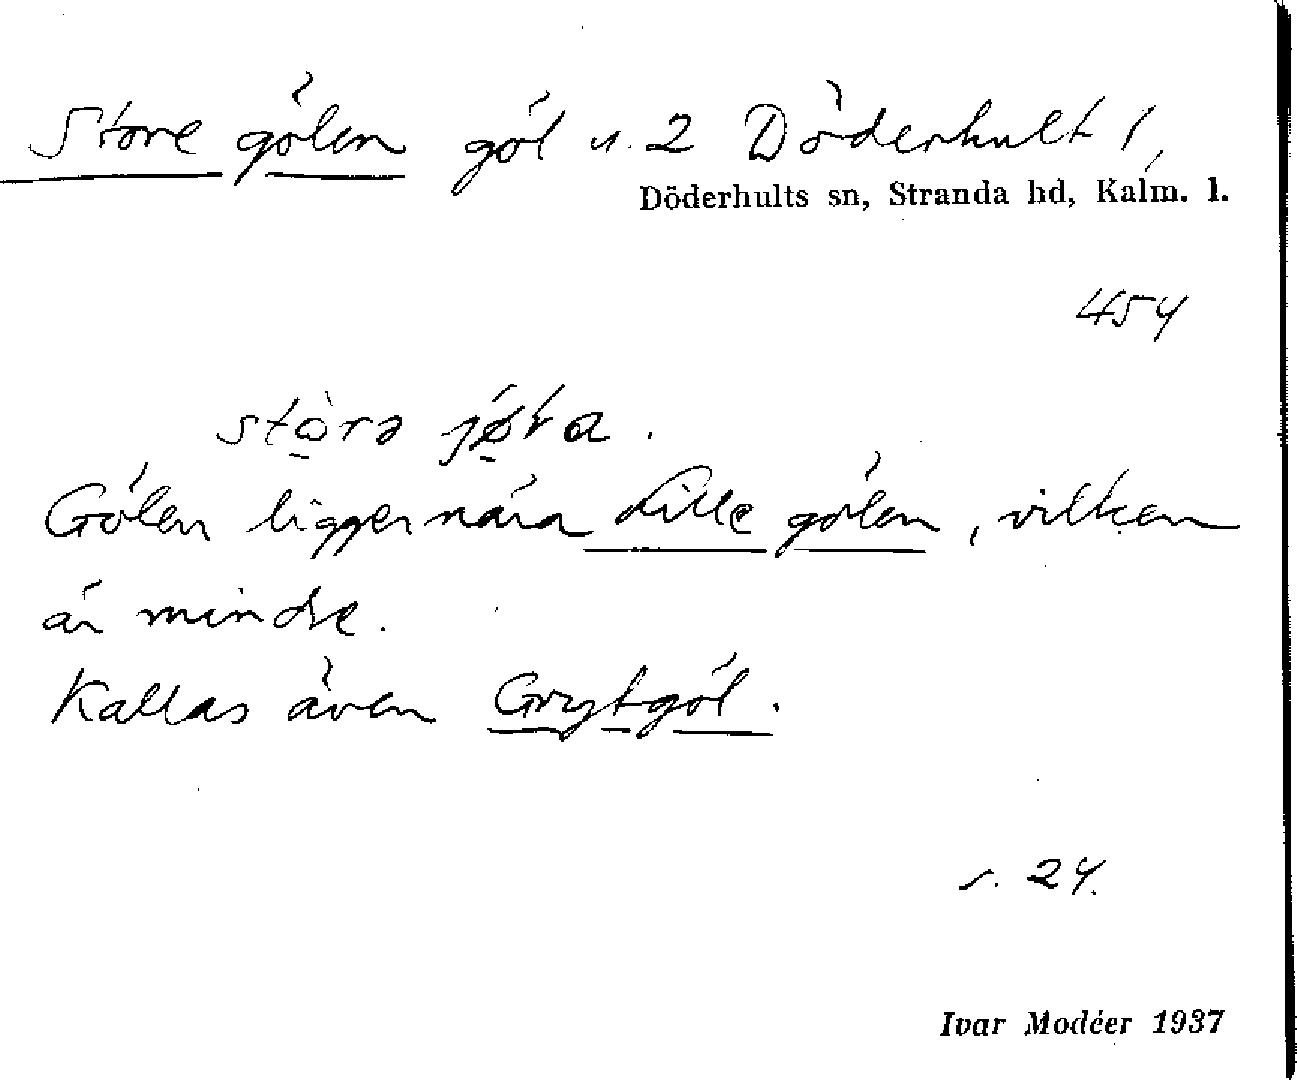 Store gölen göl u. 2 Döderhult 1,
Döderhults sn, Stranda hd, Kalm. l.
454
Gölen ligger nära Lille gölen, vilken
är mindre.
Kallas även Grytgöl.
s. 24.
Ivar Modéer 1937